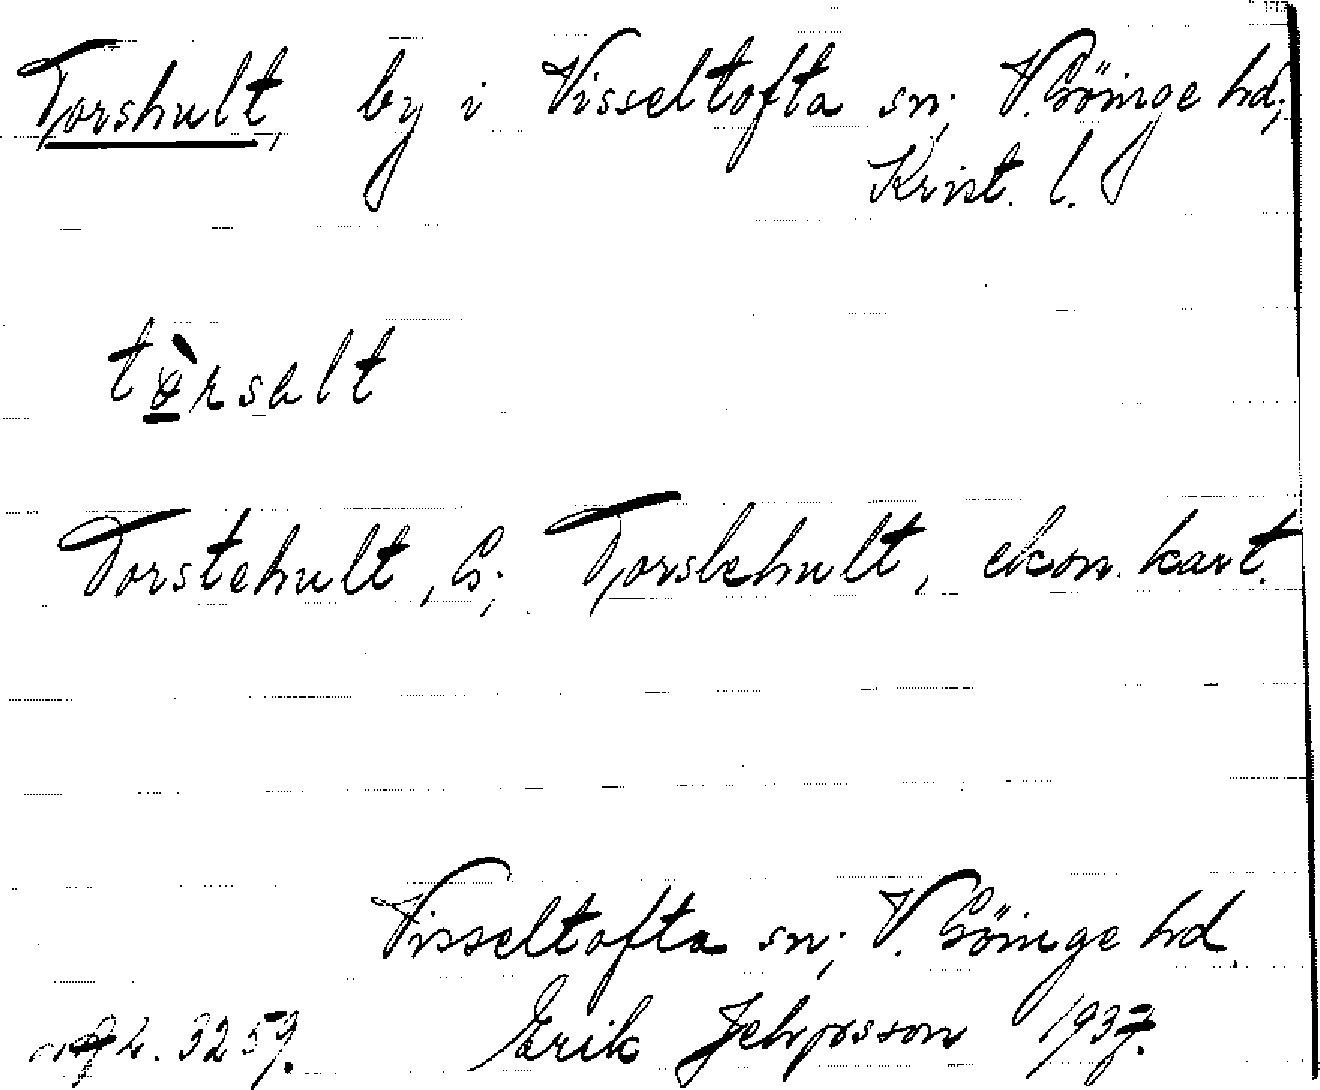 Torshult, by i Visseltofta sn; V. Göinge hd;
Krist. l.
tòrsalt
Torstehult, G; Torslehult, ekon. kart.
Visseltofta sn; V. Göinge hd.
3259. Erik Jeppsson 1937.